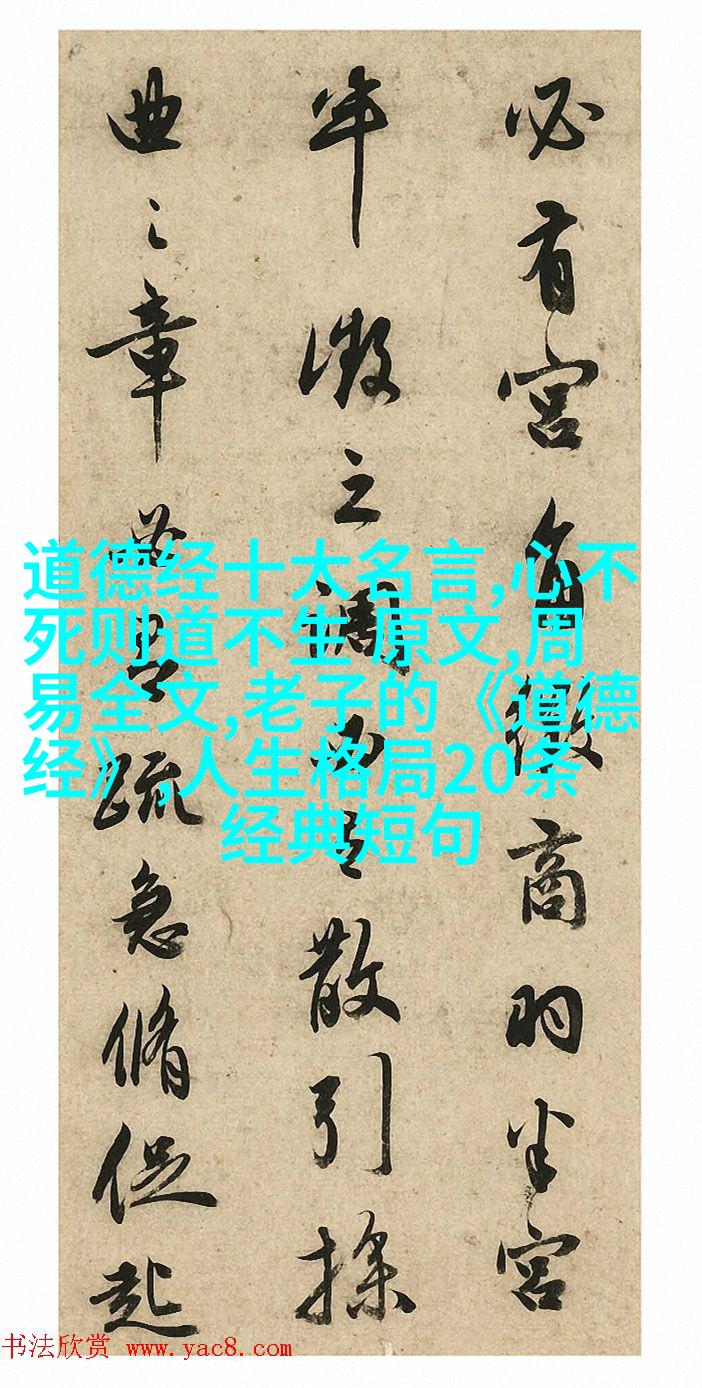 必有宮角徵商羽半宮
半徵之調散引操
曲之章疏急脩促起
道德经十大名言,心不
死则道不生 原文,周
易全文,老子的《道德
经》,人生格局20条
经典短句
书法欣赏 www.yac8.com